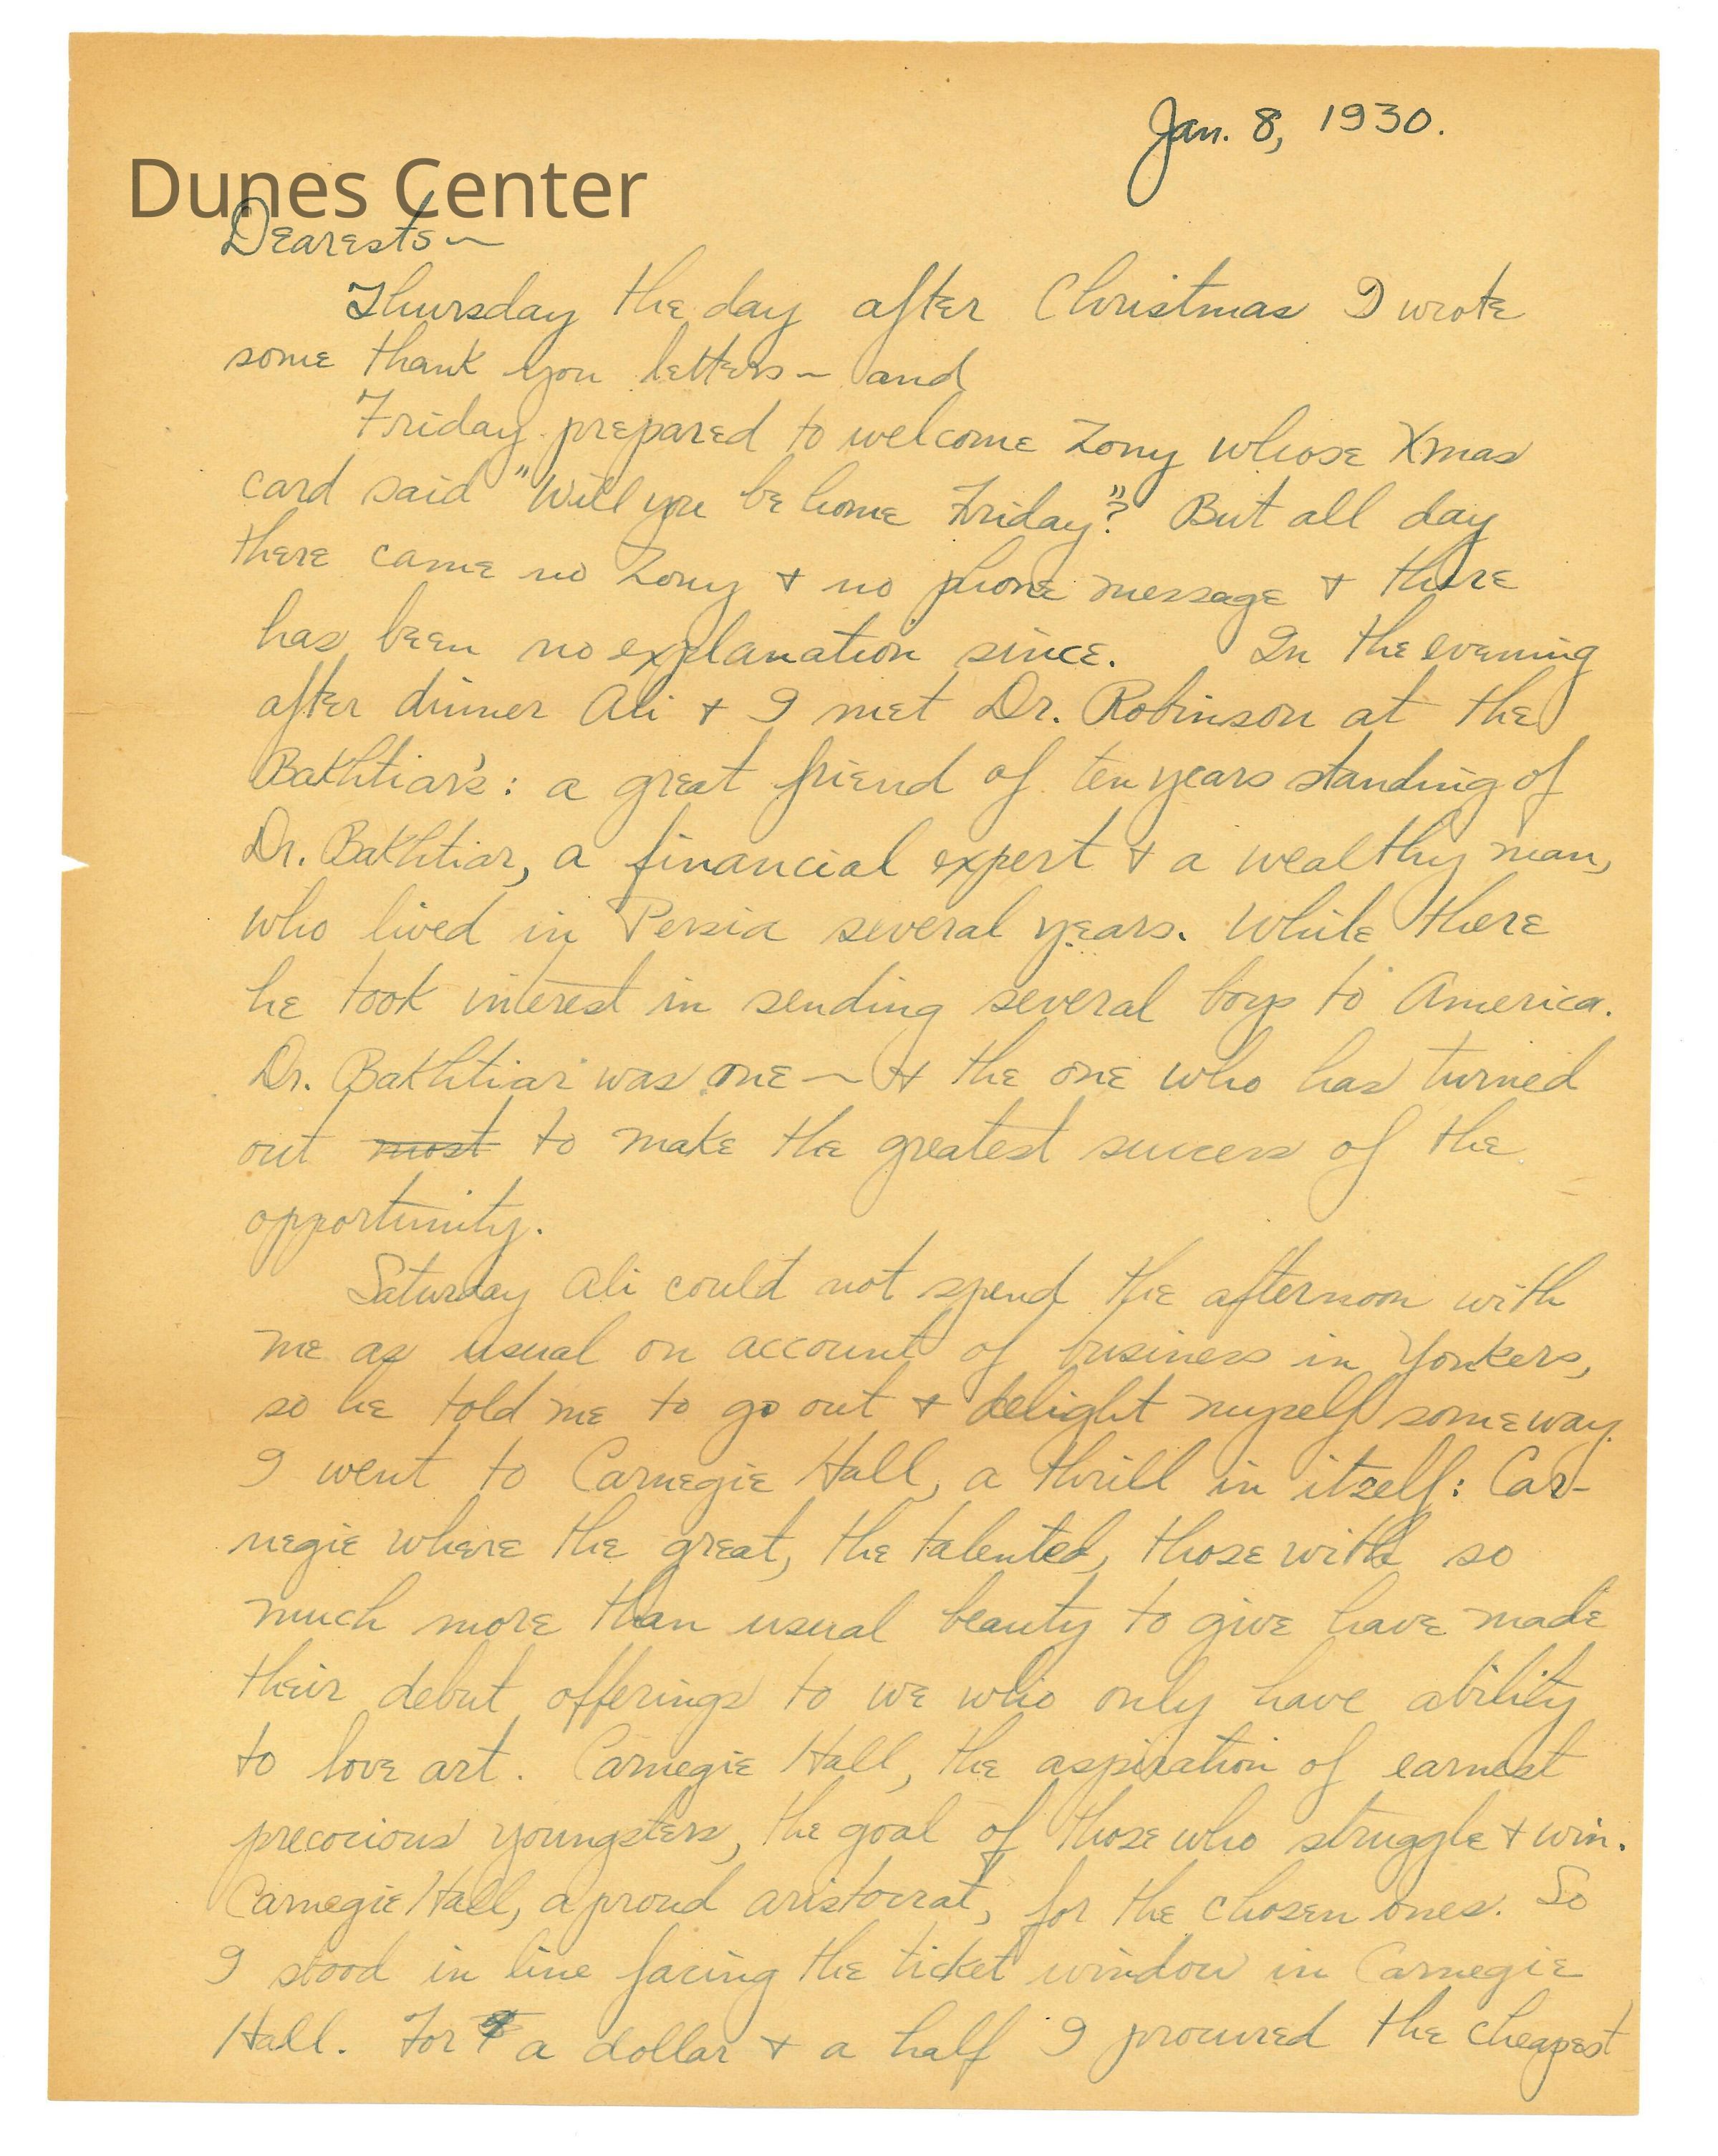 Jan. 8, 1930.
Dunes Center
Dearests~
Thursday the day after Christmas I wrote
some thank you letters ~ and
Friday prepared to welcome Zony whose Xmas
card said "Will you be home Friday"? But all day
there came no Zony + no phone message + there
has been no explanation since. In the evening
after dinner Ali + I met Dr. Robinson at the
Bakhtiar's: a great friend of ten years standing of
Dr. Bakhtiar, a financial expert + a wealthy man,
who lived in Persia several years. While there
he took interest in sending several boys to America.
Dr. Bakhtiar was one ~ + the one who has turned
out most to make the greatest success of the
opportunity.
Saturday Ali could not spend the afternoon with
me as usual on account of business in Yonkers,
so he told me to go out + delight myself someway.
I went to Carnegie Hall, a thrill in itself: Car-
negie where the great, the talented, those with so
much more than usual beauty to give have made
their debut offerings to we who only have ability
to love art. Carnegie Hall, the aspiration of earnest
precocious youngsters, the goal of those who struggle + win.
Carnegie Hall, a proud aristocrat, for the chosen ones. So
I stood in line facing the ticket window in Carnegie
Hall. For a dollar + a half I procured the cheapest